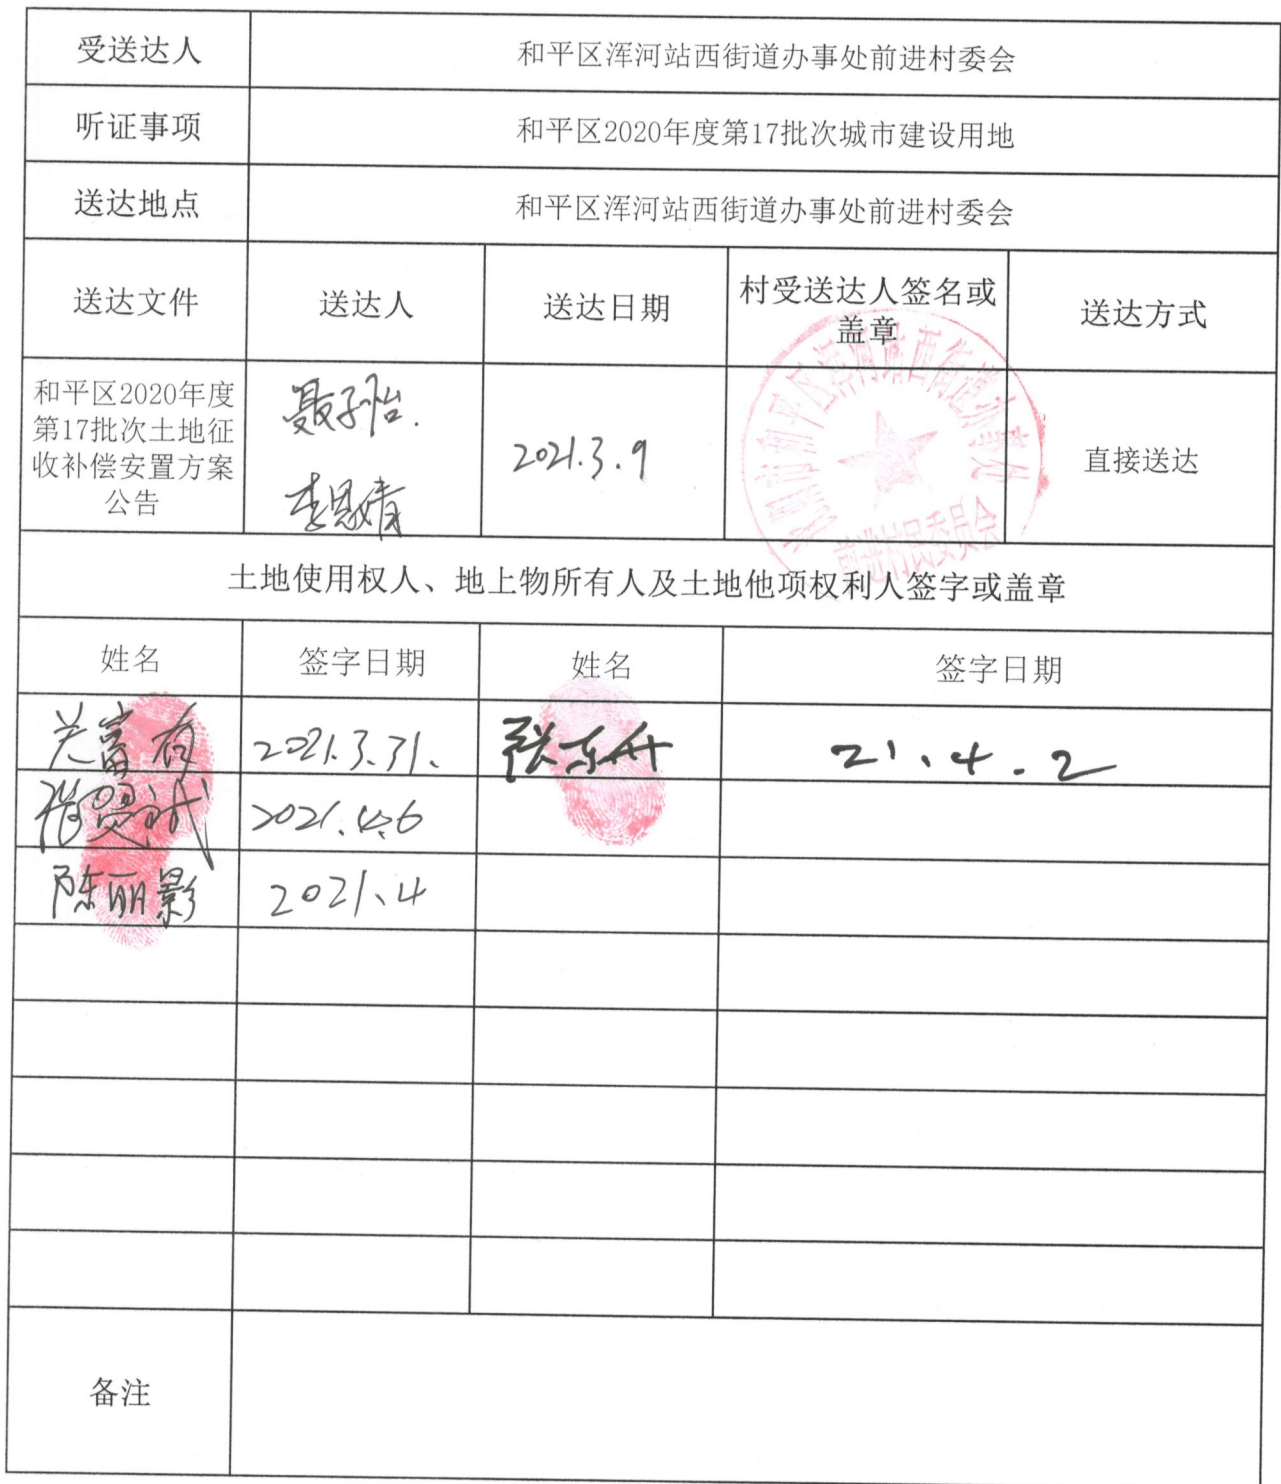 受送达人 和平区浑河站西街道办事处前进村委会
听证事项 和平区2020年度第17批次城市建设用地
送达地点 和平区浑河站西街道办事处前进村委会
送达文件 送达人 送达日期 村受送达人签名或
盖章 送达方式
和平区2020年度
第17批次土地征
收补偿安置方案
公告
聂子怡.
李思婧
2021.3.9
沈阳市和平区浑河站西街道办事处
前进村民委员会
直接送达
土地使用权人、地上物所有人及土地他项权利人签字或盖章
姓名 签字日期 姓名 签字日期
关富有 2021.3.31. 张东升 21.4.2
2021.4.6
陈丽影 2021.4
备注